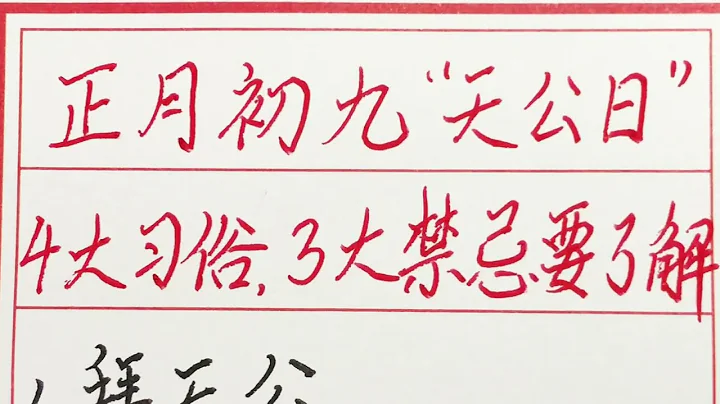 正月初九“天公日”
4大习俗,3大禁忌要了解
1拜天公